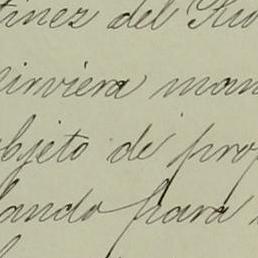 tinez del Rio
sirviera man
objeto de prop
ando para